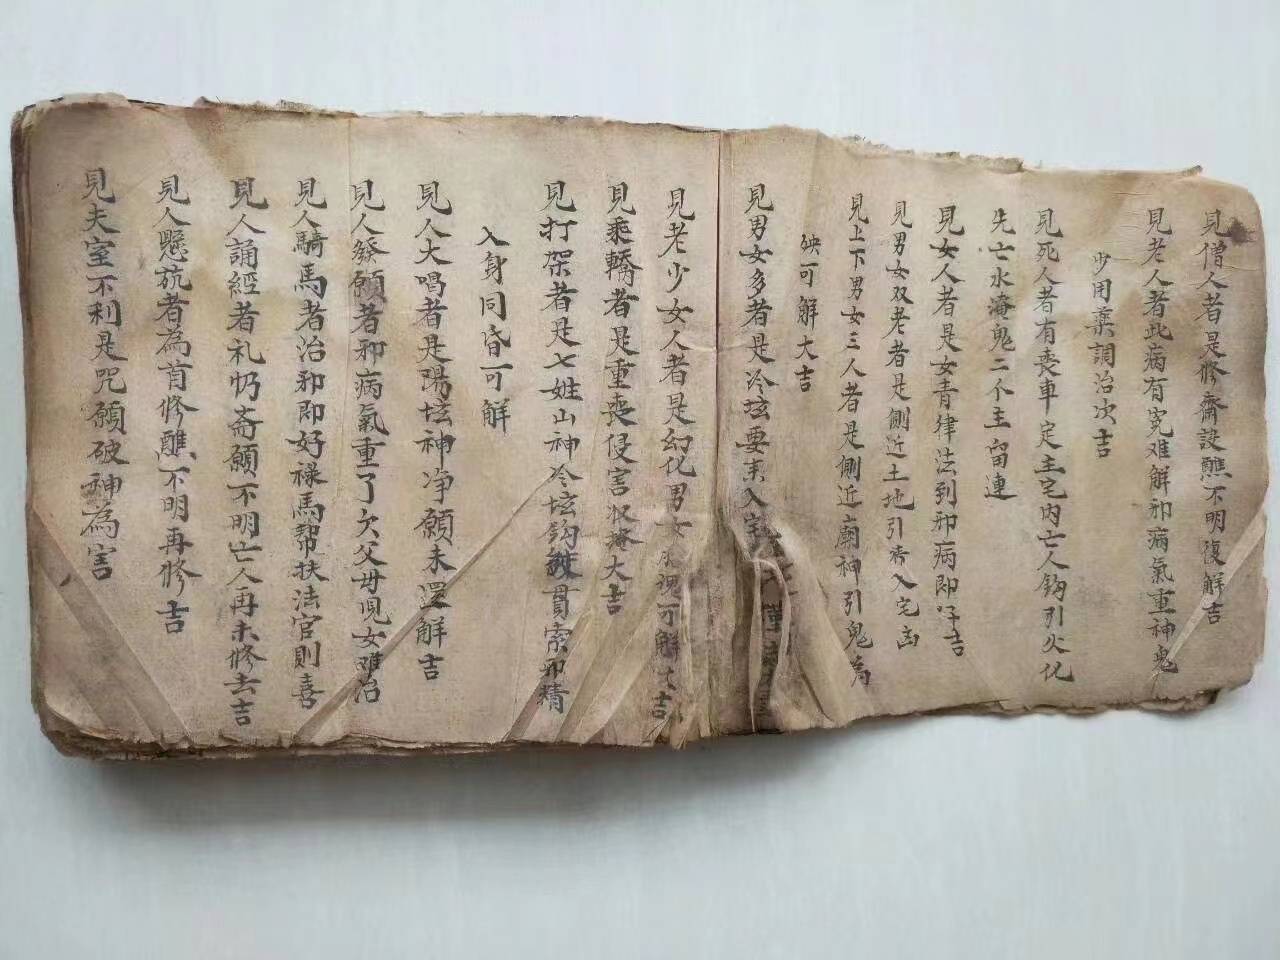 見僧人者是修齋設醮不明復解吉
見老人者此病有冤难解邪病氣重神鬼
少用藥調治次吉
見死人者有喪車定主宅内亡人鈎引火化
先亡水淹鬼二个主留連
見女人者是女青律法到邪病即好吉
見男女双老者是側近土地引香入宅凶
見上下男女三人者是側近廟神引鬼為
殃可解大吉
見男女多者是冷坛要来入宅
見老少女人者是幻化男女 魂可解大吉
見乘轎者是重喪侵害収殃大吉
見打架者是七姓山神冷坛鈎 貫索邪精
入身同昏可解
見人大唱者是陽坛神净願未还解吉
見人發願者邪病氣重了欠父母児女难治
見人騎馬者治邪即好禄馬幇扶法官則喜
見人誦經者礼忏斎願不明亡人再未修去吉
見人懸旂者為首修醮不明再修吉
見夫室不利是咒願破神為害